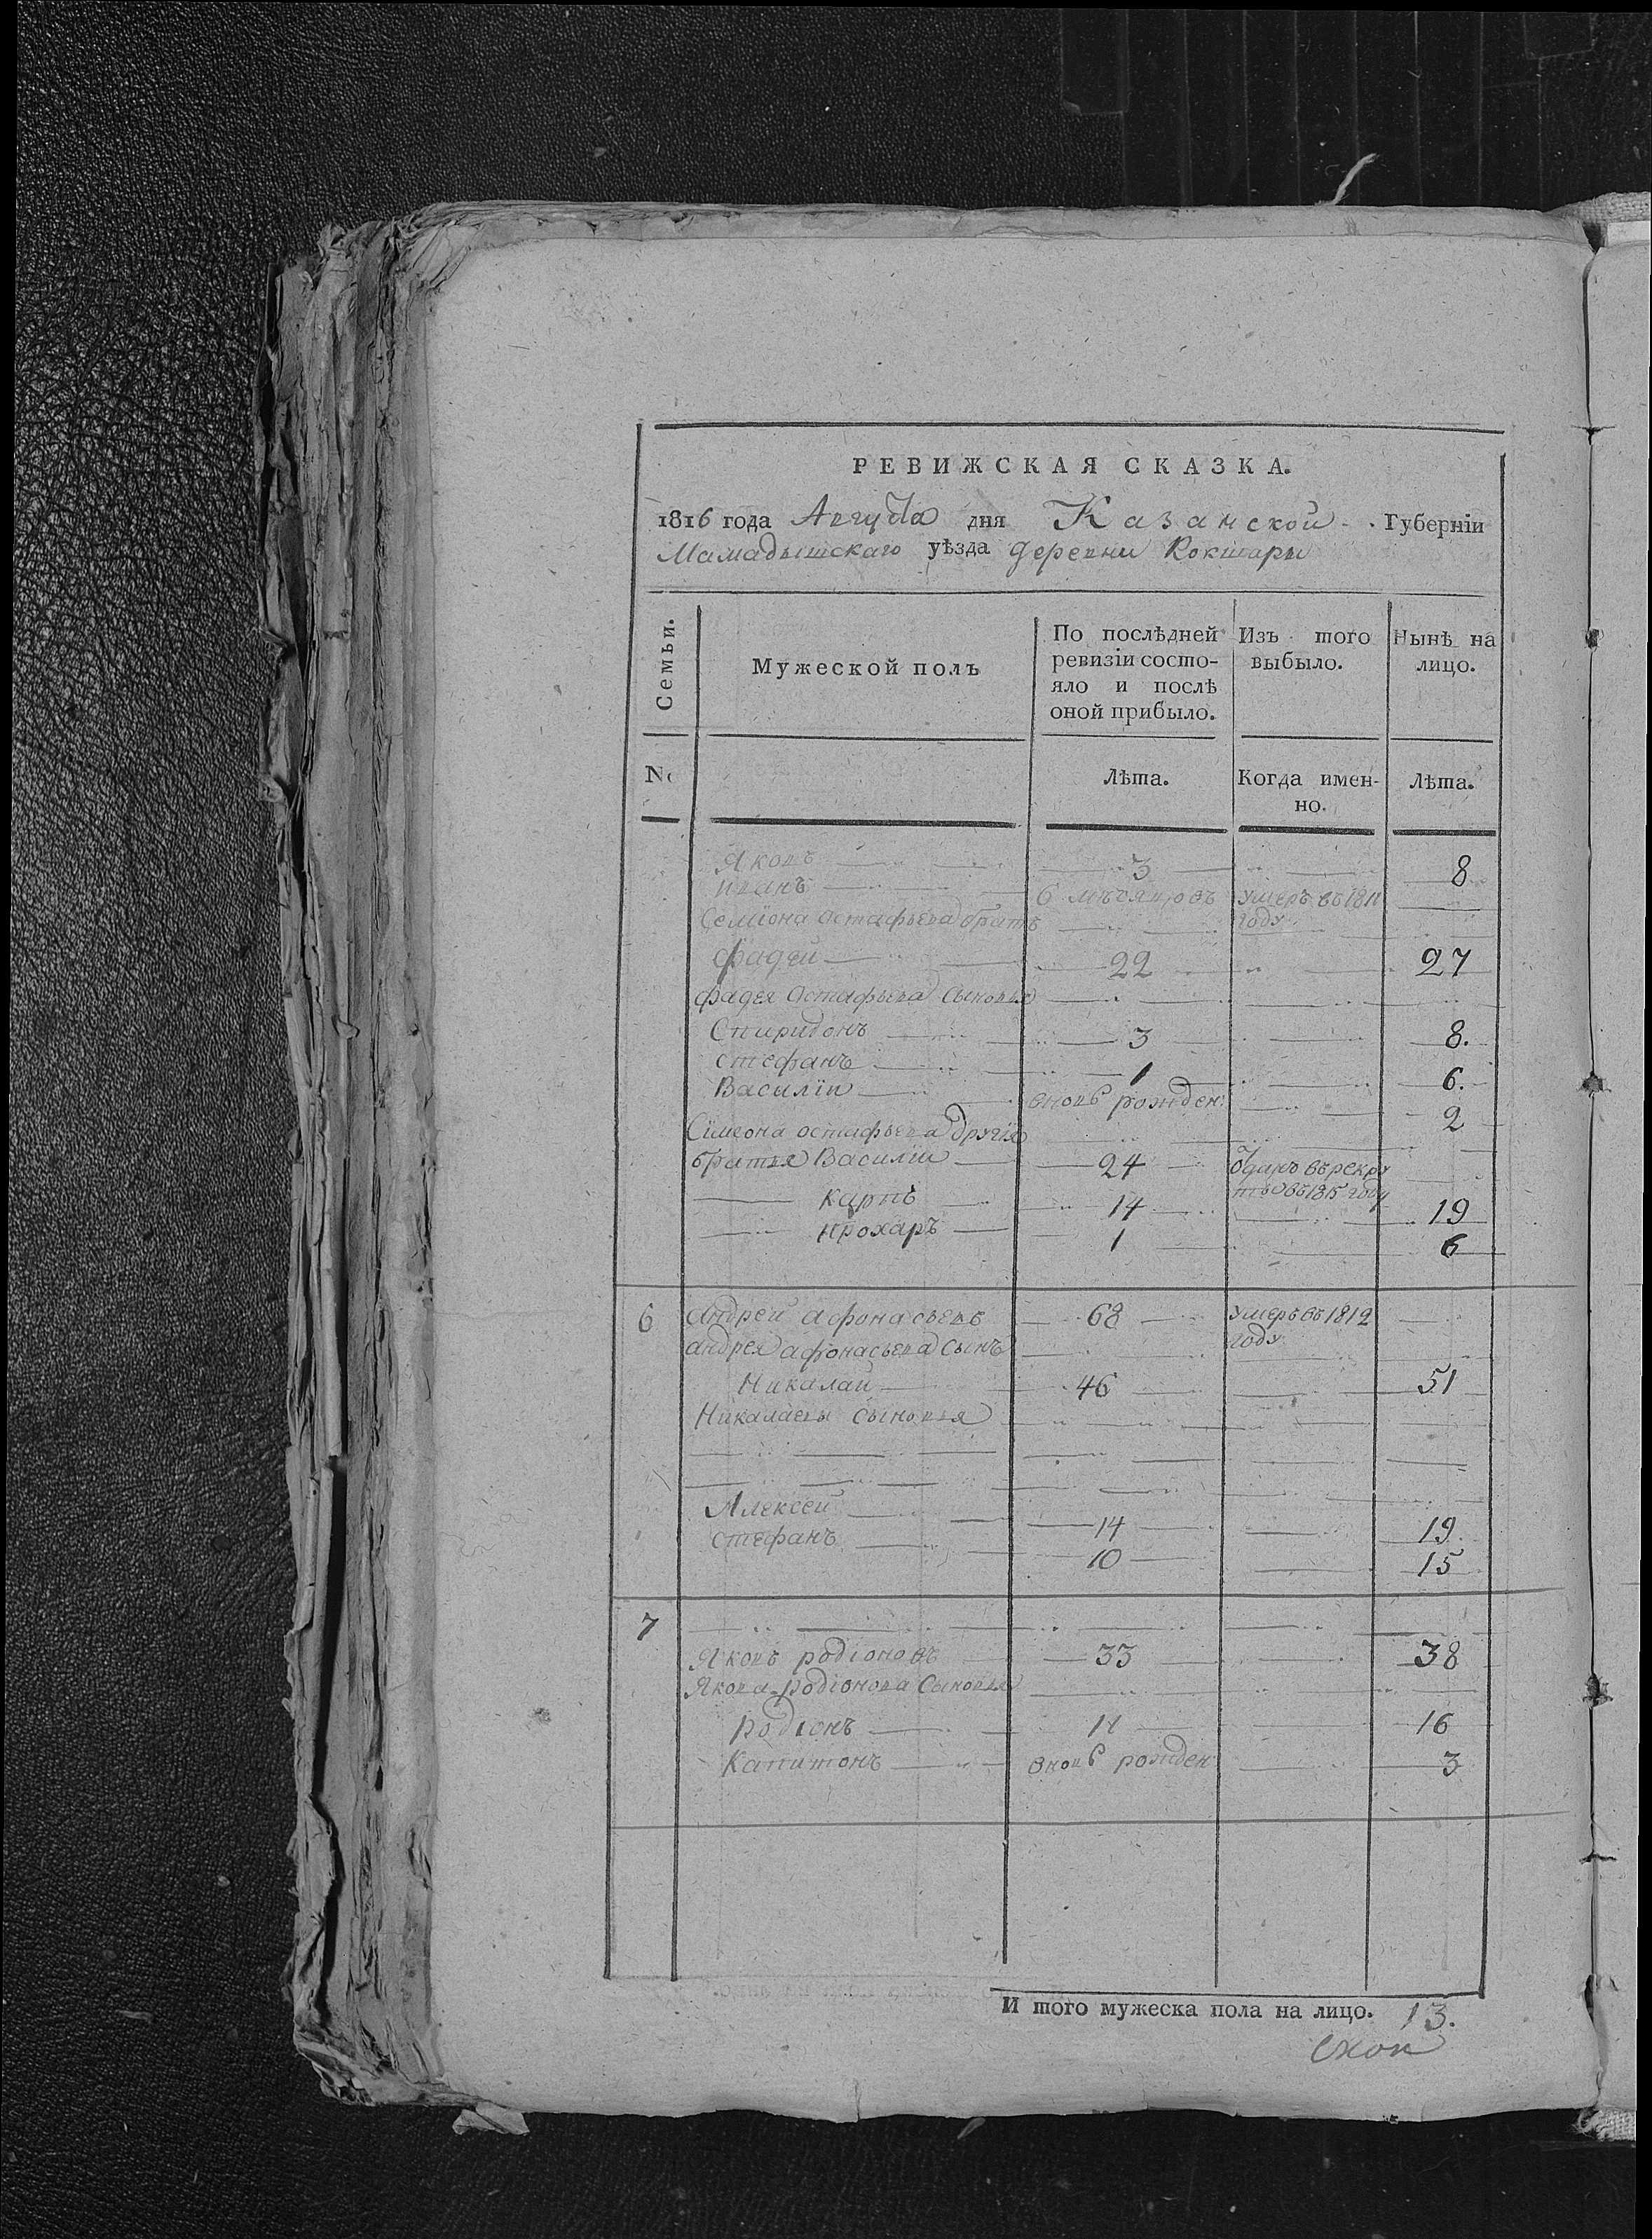 РЕВИЖСКАЯ СКАЗКА.
1816 года Августа дня Казанской Губернїи
Мамадышскаго уѣзда деревни Кокшары
Семьи. Мужеской полъ По послѣдней Изъ того Нынѣ на
ревизїи состо- выбыло. лицо.
яло и послѣ
оной прибыло.
No Лѣта. Когда имен- Лѣта.
но.
Яковъ 3 8
Иванъ 6 мѣсяцовъ умеръ въ 1811
Семїона Остафьева братъ году
Фадей 22 27
Фадея Остафьева Сыновья
Спиридонъ 3 8.
Стефанъ 1 6.
Василїй вновь рожден: 2
Симеона остафьева другїя
братья Василїй 24 Отданъ въ рекру
ты въ 1815 году
карпъ 14 19
прохаръ 1 6
6 Андрей афонасьевъ 68 умеръ въ 1812
андрея афонасьева Сынъ году
Никалай 46 51
Никалаевы Сыновья
Алексей 14 19
Стефанъ 10 15
7
Яковъ родїоновъ 33 38
Якова родїонова Сыновья
родїонъ 11 16
Капитонъ вновь рожден 3
И того мужеска пола на лицо. 13.